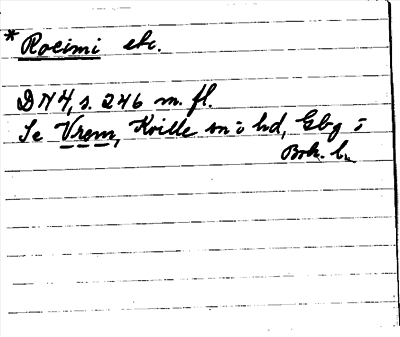 * Rocimi etc.
DN 4, s. 246 m. fl.
Se Vrem, Kville sn o hd, Gbg o
Boh. l.